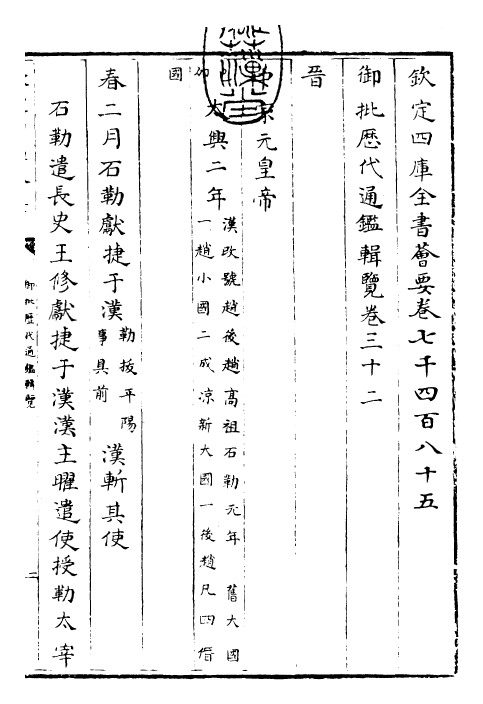 欽定四庫全書薈要卷七千四百八十五
御批歴代通鑑輯覽卷三十二
晉
元皇帝
太興二年
漢改號趙後趙髙祖石勒元年 舊大國
一趙小國二成凉新大國一後趙凡四僭
國
春二月石勒獻捷于漢
勒拔平陽
事具前
漢斬其使
石勒遣長史王修獻捷于漢漢主曜遣使授勒太宰
御批歴代通鑑輯覽